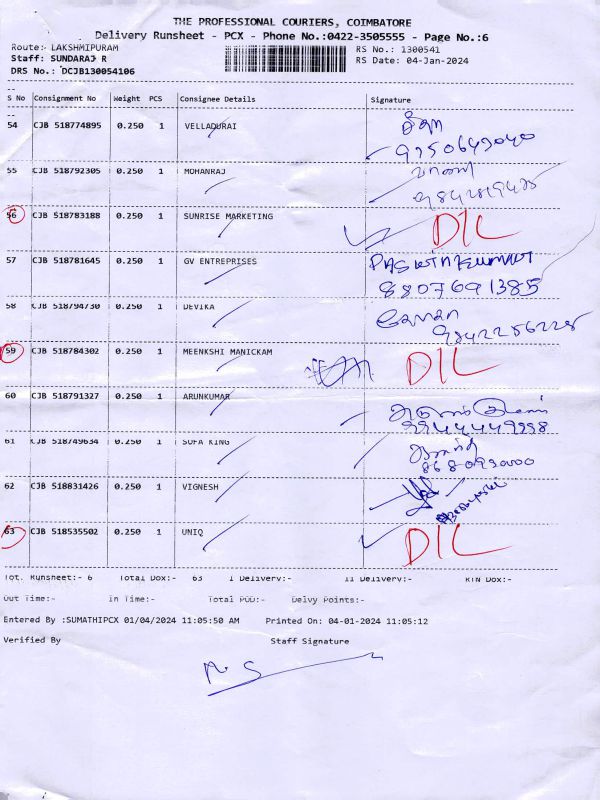 THE PROFESSIONAL COURIERS, COIMBATORE
Delivery Runsheet - PCX - Phone No.:0422-3505555 - Page No.:6
Route: LAKSHMIPURAM RS No.: 1300541
Staff: SUNDARAJ R RS Date: 04-Jan-2024
DRS No.: DCJB130054106
S No Consignment No Weight PCS Consignee Details Signature
54 CJB 518774895 0.250 1 VELLADURAI
55 CJB 518792305 0.250 1 MOHANRAJ
56 CJB 518783188 0.250 1 SUNRISE MARKETING DIL
57 CJB 518781645 0.250 1 GV ENTREPRISES
8807691385
58 CJB 518794730 0.250 1 DEVIKA
59 CJB 518784302 0.250 1 MEENKSHI MANICKAM DIL
60 CJB 518791327 0.250 1 ARUNKUMAR
61 CJB 518749634 0.250 1 SOFA KING
62 CJB 518831426 0.250 1 VIGNESH
63 CJB 518535502 0.250 1 UNIQ DIL
Tot. Runsheet:- 6 Total Dox:- 63 I Delivery:- II Delivery:- RTN Dox:-
Out Time:- In Time:- Total POD:- Delvy Points:-
Entered By :SUMATHIPCX 01/04/2024 11:05:50 AM Printed On: 04-01-2024 11:05:12
Verified By Staff Signature